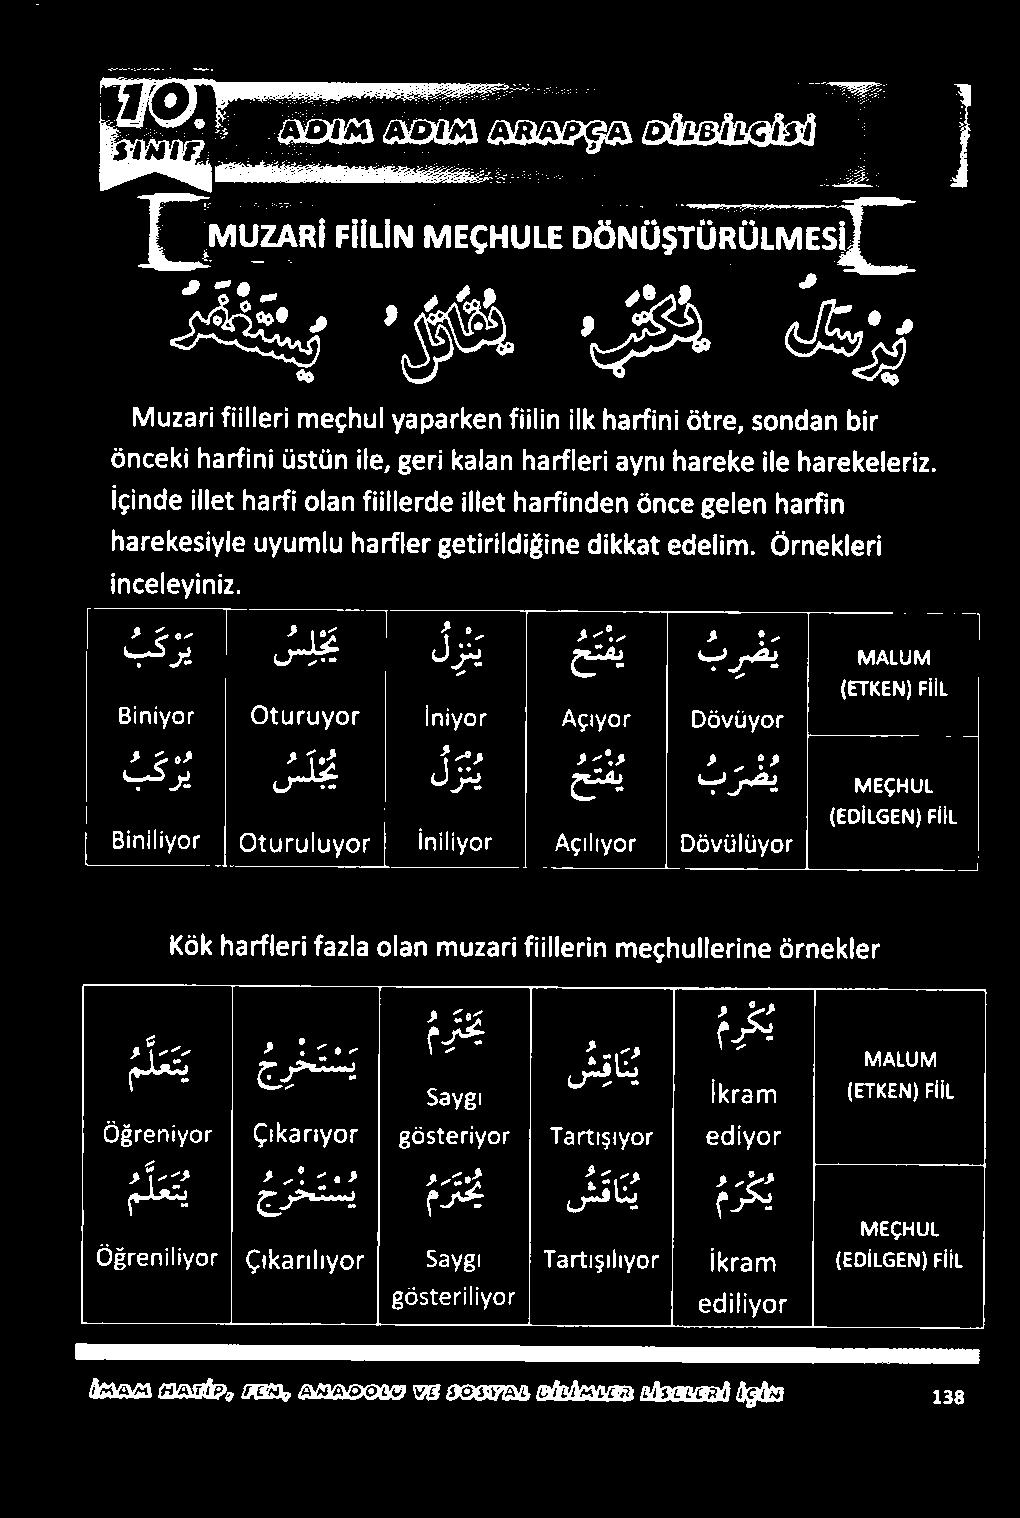 10.
SINIF
ADIM ADIM ARAPÇA DİLBİLGİSİ
MUZARİ FİİLİN MEÇHULE DÖNÜŞTÜRÜLMESİ
يُرْسَلُ يُكْتَبُ يُقَاتَلُ يُسْتَغْفَرُ
Muzari fiilleri meçhul yaparken fiilin ilk harfini ötre, sondan bir
önceki harfini üstün ile, geri kalan harfleri aynı hareke ile harekeleriz.
İçinde illet harfi olan fiillerde illet harfinden önce gelen harfin
harekesiyle uyumlu harfler getirildiğine dikkat edelim. Örnekleri
inceleyiniz.
يَرْكَبُ يَجْلِسُ يَنْزِلُ يَفْتَحُ يَضْرِبُ MALUM
(ETKEN) FİİL
Biniyor Oturuyor İniyor Açıyor Dövüyor
يُرْكَبُ يُجْلَسُ يُنْزَلُ يُفْتَحُ يُضْرَبُ MEÇHUL
(EDİLGEN) FİİL
Biniliyor Oturuluyor İniliyor Açılıyor Dövülüyor
Kök harfleri fazla olan muzari fiillerin meçhullerine örnekler
يَتَعَلَّمُ يَسْتَخْرِجُ يَحْتَرِمُ يُنَاقِشُ يُكْرِمُ MALUM
(ETKEN) FİİL
Öğreniyor Çıkarıyor Saygı gösteriyor Tartışıyor İkram ediyor
يُتَعَلَّمُ يُسْتَخْرَجُ يُحْتَرَمُ يُنَاقَشُ يُكْرَمُ MEÇHUL
(EDİLGEN) FİİL
Öğreniliyor Çıkarılıyor Saygı gösteriliyor Tartışılıyor İkram ediliyor
İMAM HATİP, FEN, ANADOLU VE SOSYAL BİLİMLER LİSELERİ İÇİN 138